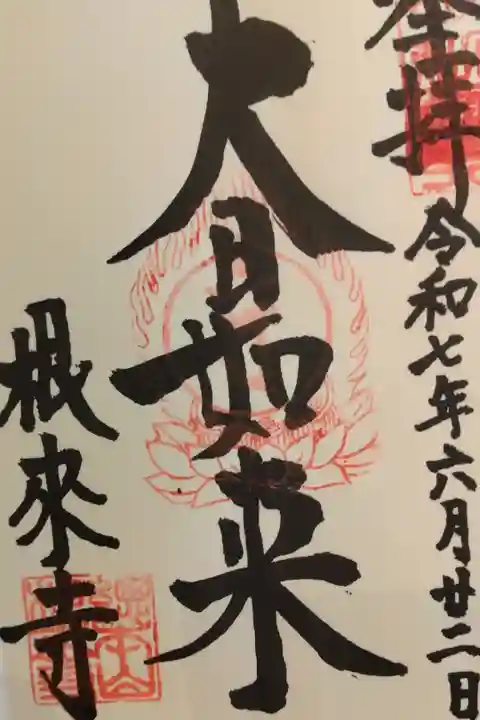 奉拝 令和七年六月廿二日
大日如来
根來寺